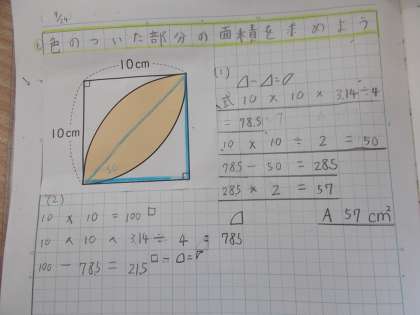 9/14
色のついた部分の面積を求めよう
10cm
10cm
(1)
式 10 × 10 × 3.14 ÷ 4
= 78.5
10 × 10 ÷ 2 = 50
78.5 - 50 = 28.5
28.5 × 2 = 57
A 57 cm²
(2)
10 × 10 = 100
10 × 10 × 3.14 ÷ 4 = 78.5
100 - 78.5 = 21.5